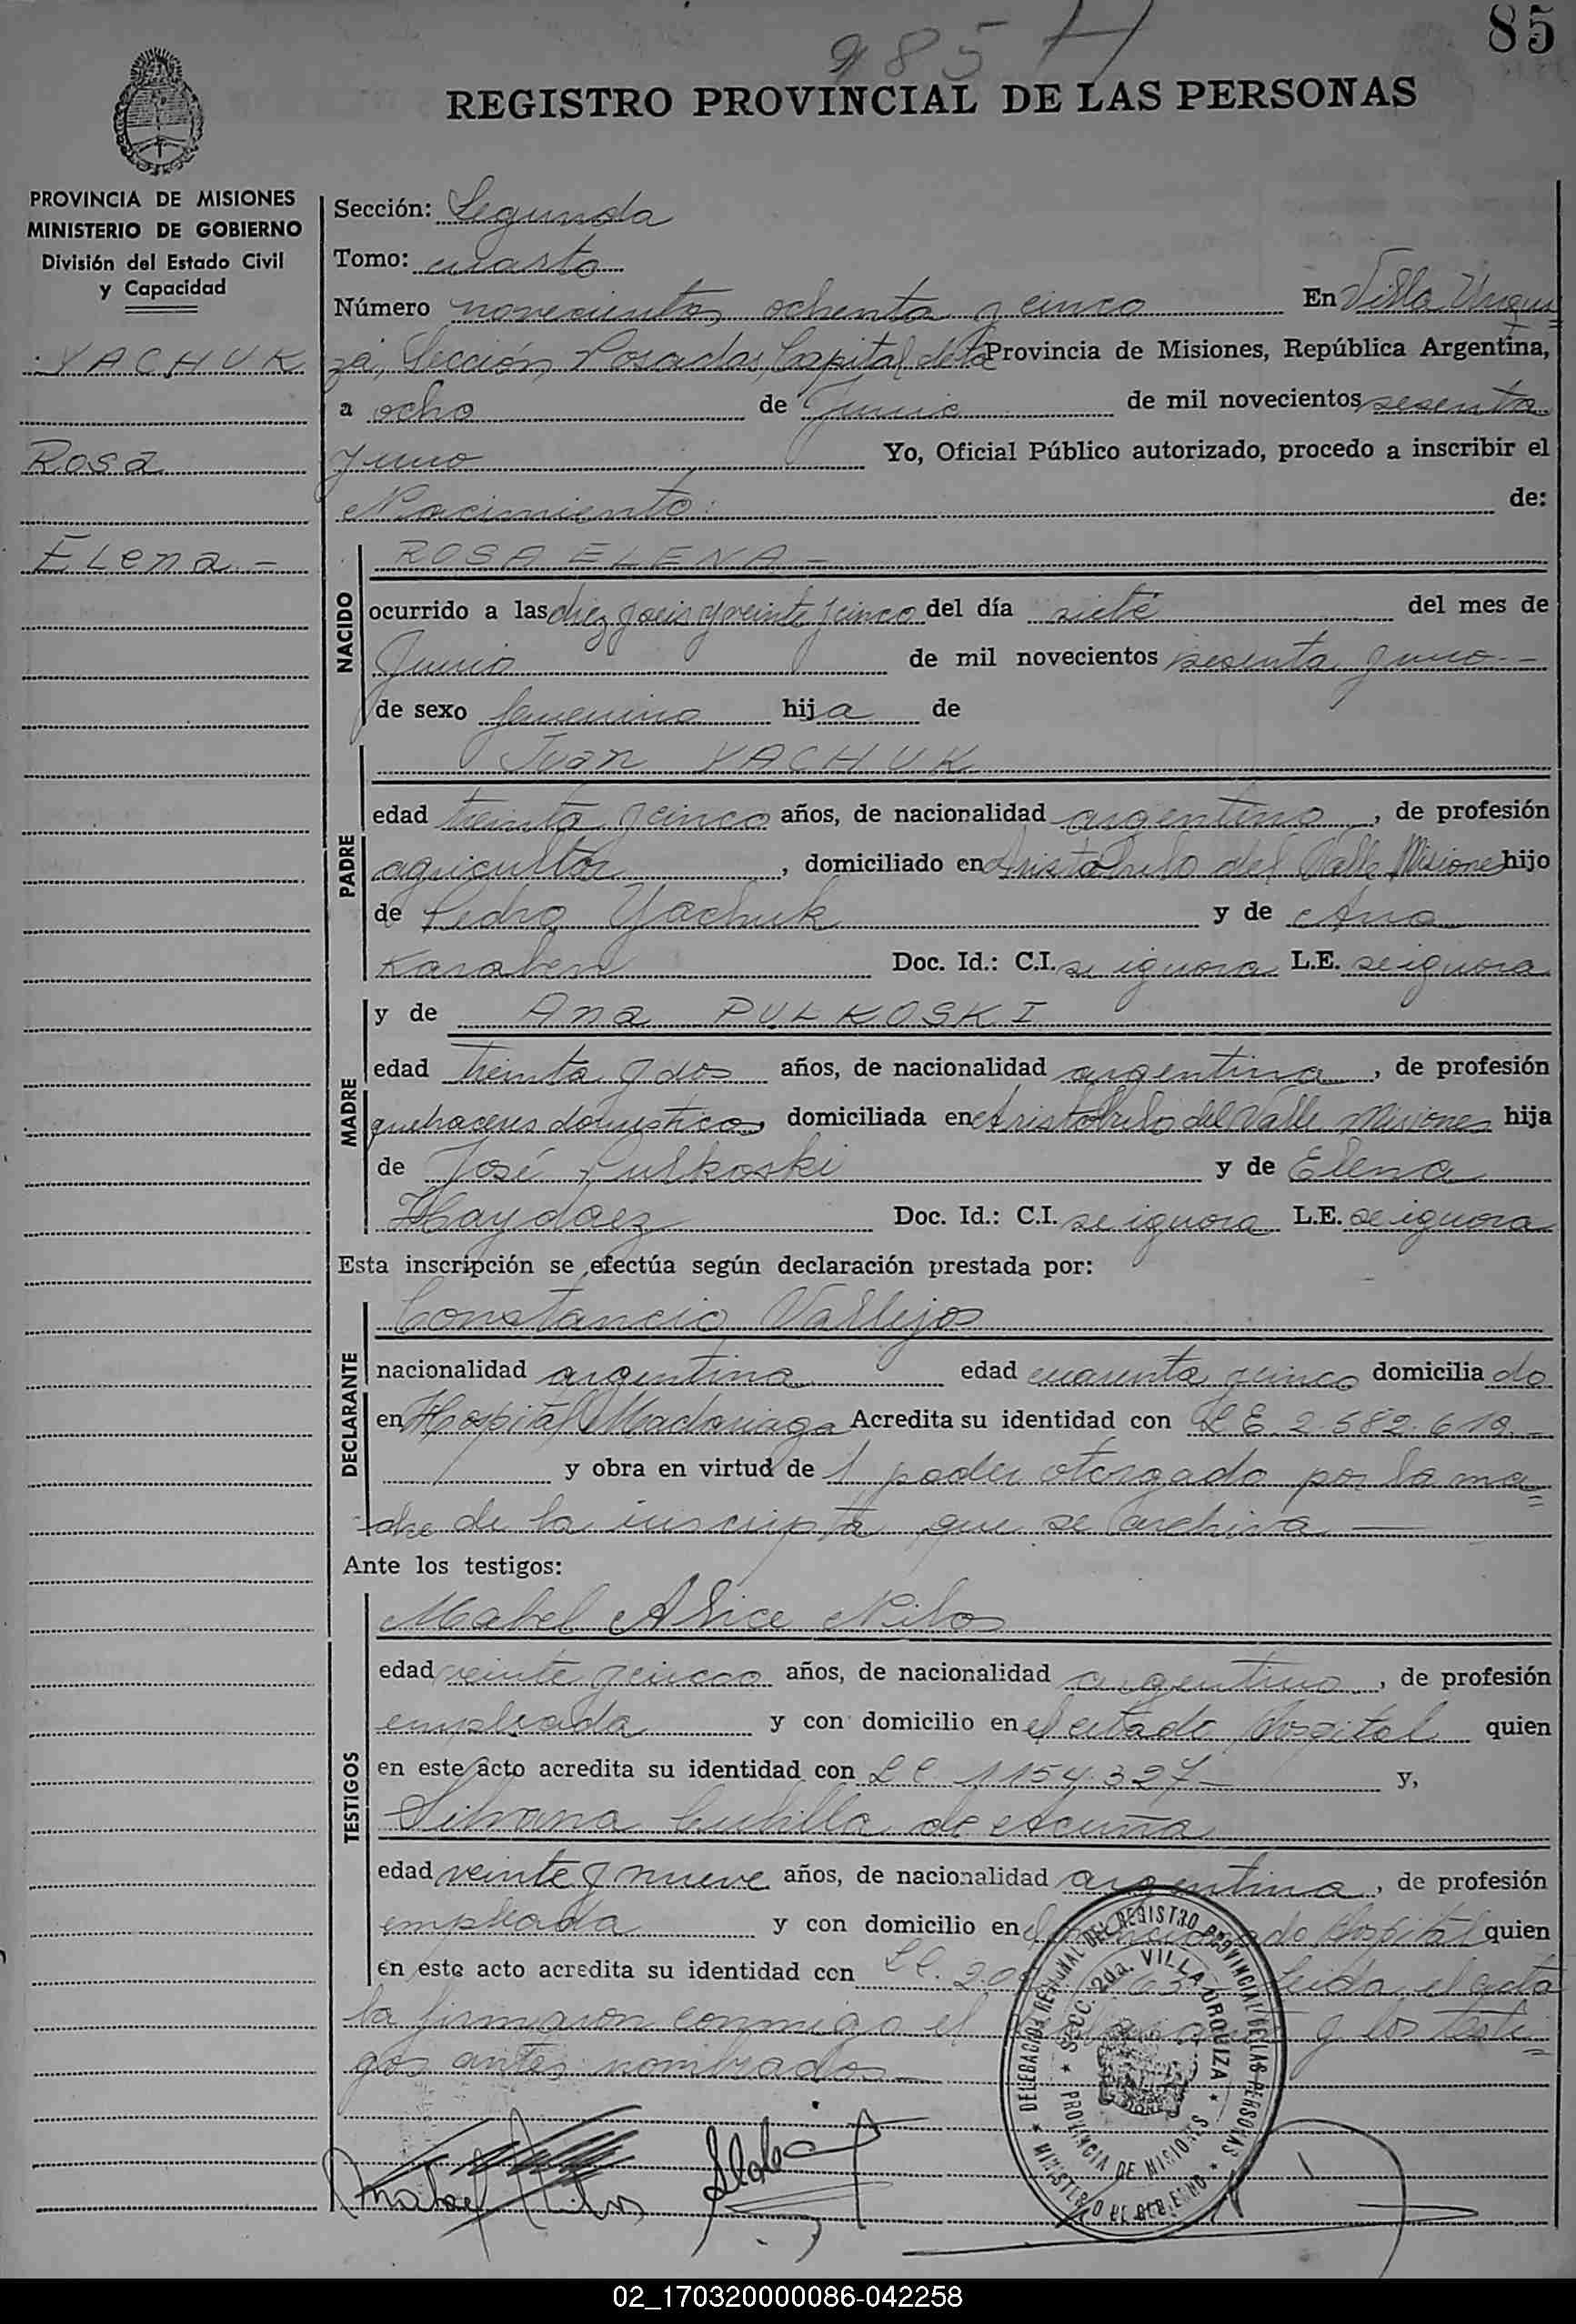 985 H
85
REGISTRO PROVINCIAL DE LAS PERSONAS
PROVINCIA DE MISIONES
MINISTERIO DE GOBIERNO
División del Estado Civil
y Capacidad
YACHUK
Rosa
Elena -
Sección: Segunda
Tomo: cuarto
Número novecientos ochenta y cinco En Villa Urqui
za, Sección, Posadas, Capital de la Provincia de Misiones, República Argentina,
a ocho de Junio de mil novecientos sesenta
y uno Yo, Oficial Público autorizado, procedo a inscribir el
Nacimiento: de:
NACIDO
ROSA ELENA -
ocurrido a las diez y seis y veinte y cinco del día siete del mes de
Junio de mil novecientos sesenta y uno -
de sexo femenino hija de
PADRE
Juan YACHUK
edad treinta y cinco años, de nacionalidad argentino, de profesión
agricultor, domiciliado en Aristóbulo del Valle Misiones hijo
de Pedro Yachuk y de Ana
Karaben Doc. Id.: C.I. se ignora L.E. se ignora
MADRE
y de Ana PULKOSKI
edad treinta y dos años, de nacionalidad argentina, de profesión
quehaceres domésticos, domiciliada en Aristóbulo del Valle Misiones hija
de José Pulkoski y de Elena
Haydaez Doc. Id.: C.I. se ignora L.E. se ignora
Esta inscripción se efectúa según declaración prestada por:
DECLARANTE
Constancio Vallejos
nacionalidad argentina edad cuarenta y cinco domiciliado
en Hospital Madariaga Acredita su identidad con L E 2.582.619.-
y obra en virtud de 1 poder otorgado por la ma
dre de la inscripta que se archiva —
Ante los testigos:
TESTIGOS
Mabel Alice Nilos
edad veinte y cinco años, de nacionalidad argentina, de profesión
empleada y con domicilio en el citado Hospital quien
en este acto acredita su identidad con L C. 1154.327 - y,
Silvana Cubilla de Acuña
edad veinte y nueve años, de nacionalidad argentina, de profesión
empleada y con domicilio en el mencionado Hospital quien
en este acto acredita su identidad con L C. Leida el acta
la firmaron conmigo el y los testi
gos antes nombrados -
DELEGACION REGIONAL DEL REGISTRO PROVINCIAL DE LAS PERSONAS
MINISTERIO DE GOBIERNO
SECC. 2da. VILLA URQUIZA
PROVINCIA DE MISIONES
02_170320000086-042258